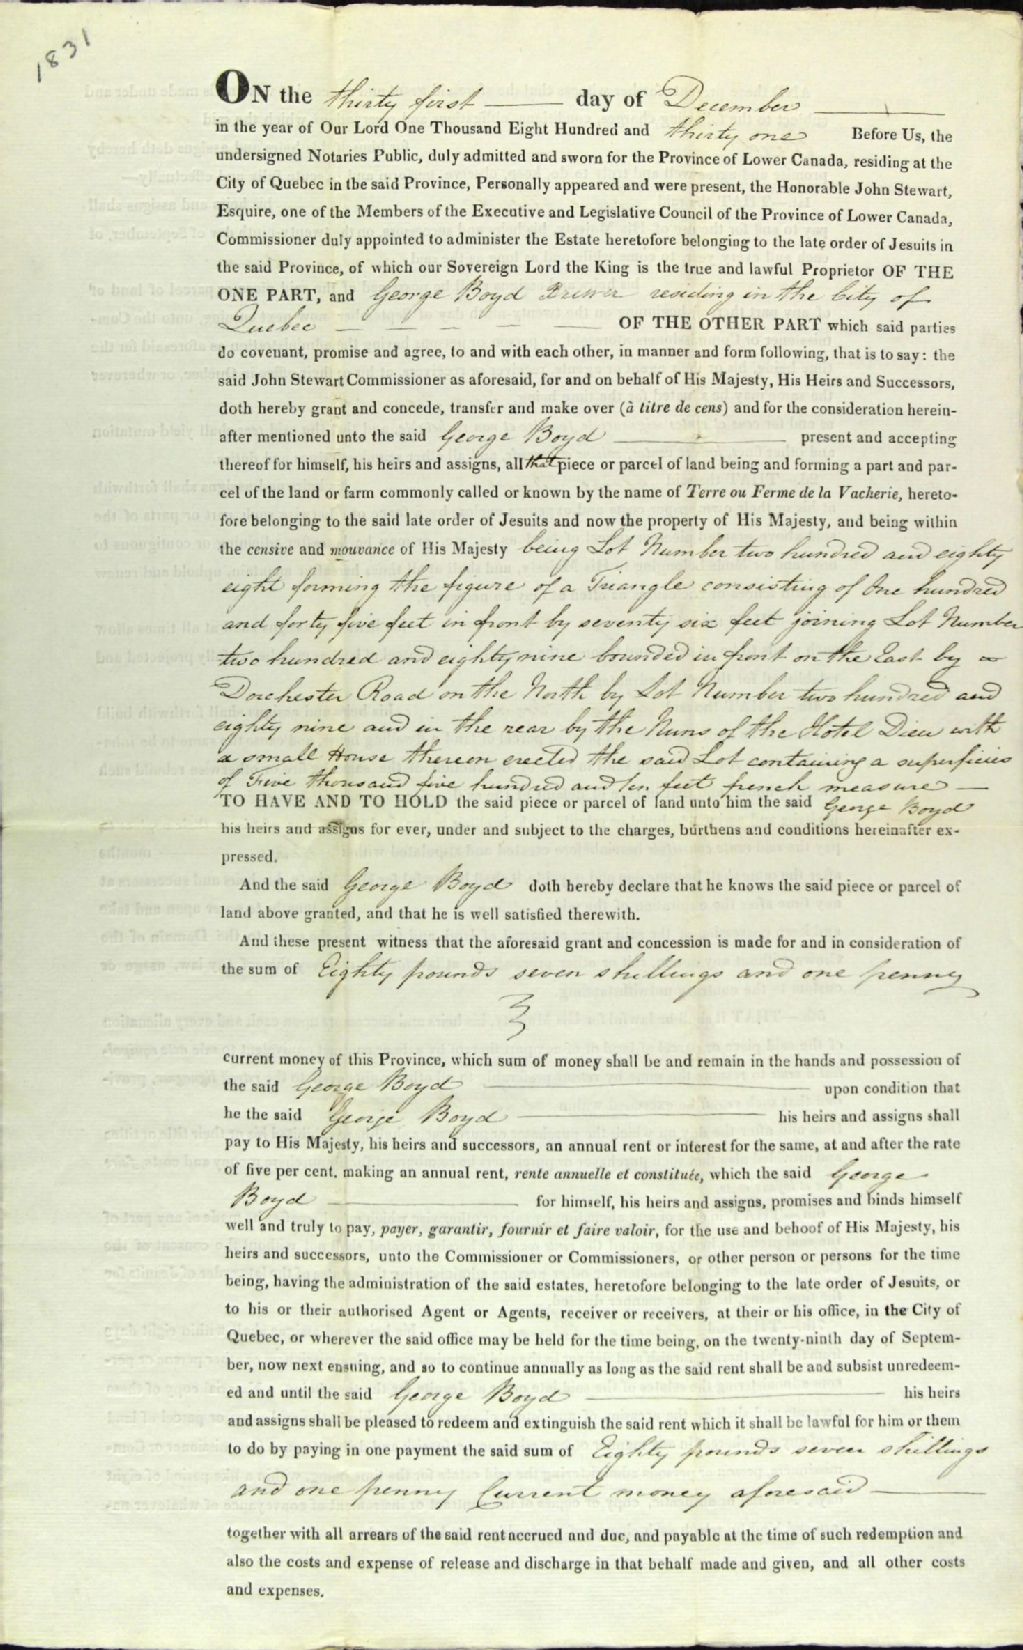 1831
ON the thirty first day of December
in the year of Our Lord One Thousand Eight Hundred and thirty one Before Us, the
undersigned Notaries Public, duly admitted and sworn for the Province of Lower Canada, residing at the
City of Quebec in the said Province, Personally appeared and were present, the Honorable John Stewart,
Esquire, one of the Members of the Executive and Legislative Council of the Province of Lower Canada,
Commissioner duly appointed to administer the Estate heretofore belonging to the late order of Jesuits in
the said Province, of which our Sovereign Lord the King is the true and lawful Proprietor OF THE
ONE PART, and George Boyd residing in the City of
Quebec — — — — — OF THE OTHER PART which said parties
do covenant, promise and agree, to and with each other, in manner and form following, that is to say: the
said John Stewart Commissioner as aforesaid, for and on behalf of His Majesty, His Heirs and Successors,
doth hereby grant and concede, transfer and make over (à titre de cens) and for the consideration herein-
after mentioned unto the said George Boyd present and accepting
thereof for himself, his heirs and assigns, all that piece or parcel of land being and forming a part and par-
cel of the land or farm commonly called or known by the name of Terre ou Ferme de la Vacherie, hereto-
fore belonging to the said late order of Jesuits and now the property of His Majesty, and being within
the censive and mouvance of His Majesty being Lot Number two hundred and eighty
eight forming the figure of a Triangle consisting of One hundred
and forty five feet in front by seventy six feet joining Lot Number
two hundred and eighty nine bounded in front on the East by
Dorchester Road on the North by Lot Number two hundred and
eighty nine and in the rear by the Nuns of the Hotel Dieu with
a small House thereon erected the said Lot containing a superficies
of Five thousand five hundred and ten feet french measure —
TO HAVE AND TO HOLD the said piece or parcel of land unto him the said George Boyd
his heirs and assigns for ever, under and subject to the charges, burthens and conditions hereinafter ex-
pressed.
And the said George Boyd doth hereby declare that he knows the said piece or parcel of
land above granted, and that he is well satisfied therewith.
And these present witness that the aforesaid grant and concession is made for and in consideration of
the sum of Eighty pounds seven shillings and one penny
current money of this Province, which sum of money shall be and remain in the hands and possession of
the said George Boyd upon condition that
he the said George Boyd his heirs and assigns shall
pay to His Majesty, his heirs and successors, an annual rent or interest for the same, at and after the rate
of five per cent. making an annual rent, rente annuelle et constituée, which the said George
Boyd for himself, his heirs and assigns, promises and binds himself
well and truly to pay, payer, garantir, fournir et faire valoir, for the use and behoof of His Majesty, his
heirs and successors, unto the Commissioner or Commissioners, or other person or persons for the time
being, having the administration of the said estates, heretofore belonging to the late order of Jesuits, or
to his or their authorised Agent or Agents, receiver or receivers, at their or his office, in the City of
Quebec, or wherever the said office may be held for the time being, on the twenty-ninth day of Septem-
ber, now next ensuing, and so to continue annually as long as the said rent shall be and subsist unredeem-
ed and until the said George Boyd his heirs
and assigns shall be pleased to redeem and extinguish the said rent which it shall be lawful for him or them
to do by paying in one payment the said sum of Eighty pounds seven shillings
and one penny Current money aforesaid —
together with all arrears of the said rent accrued and due, and payable at the time of such redemption and
also the costs and expense of release and discharge in that behalf made and given, and all other costs
and expenses.